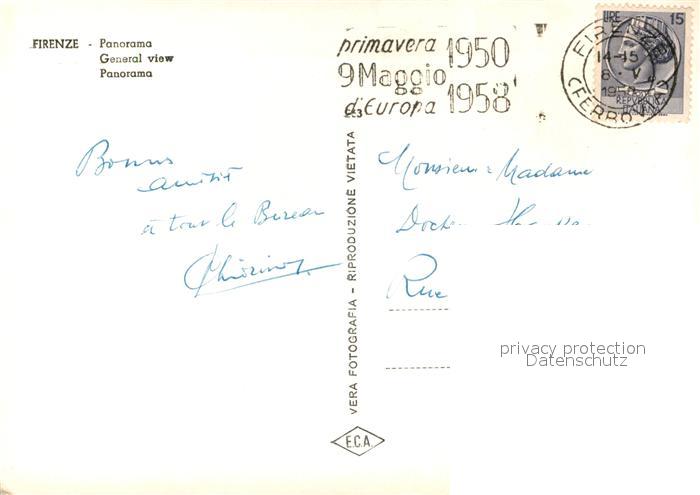 FIRENZE - Panorama
General view
Panorama
primavera 1950
9 Maggio
d'Europa 1958
LIRE 15
FIRENZE
14-15
8 · V
19
(FERROVIA
Bonnes
amitiés
à tout le Bureau
Monsieur Madame
Rue
VERA FOTOGRAFIA - RIPRODUZIONE VIETATA
E.C.A.
privacy protection
Datenschutz